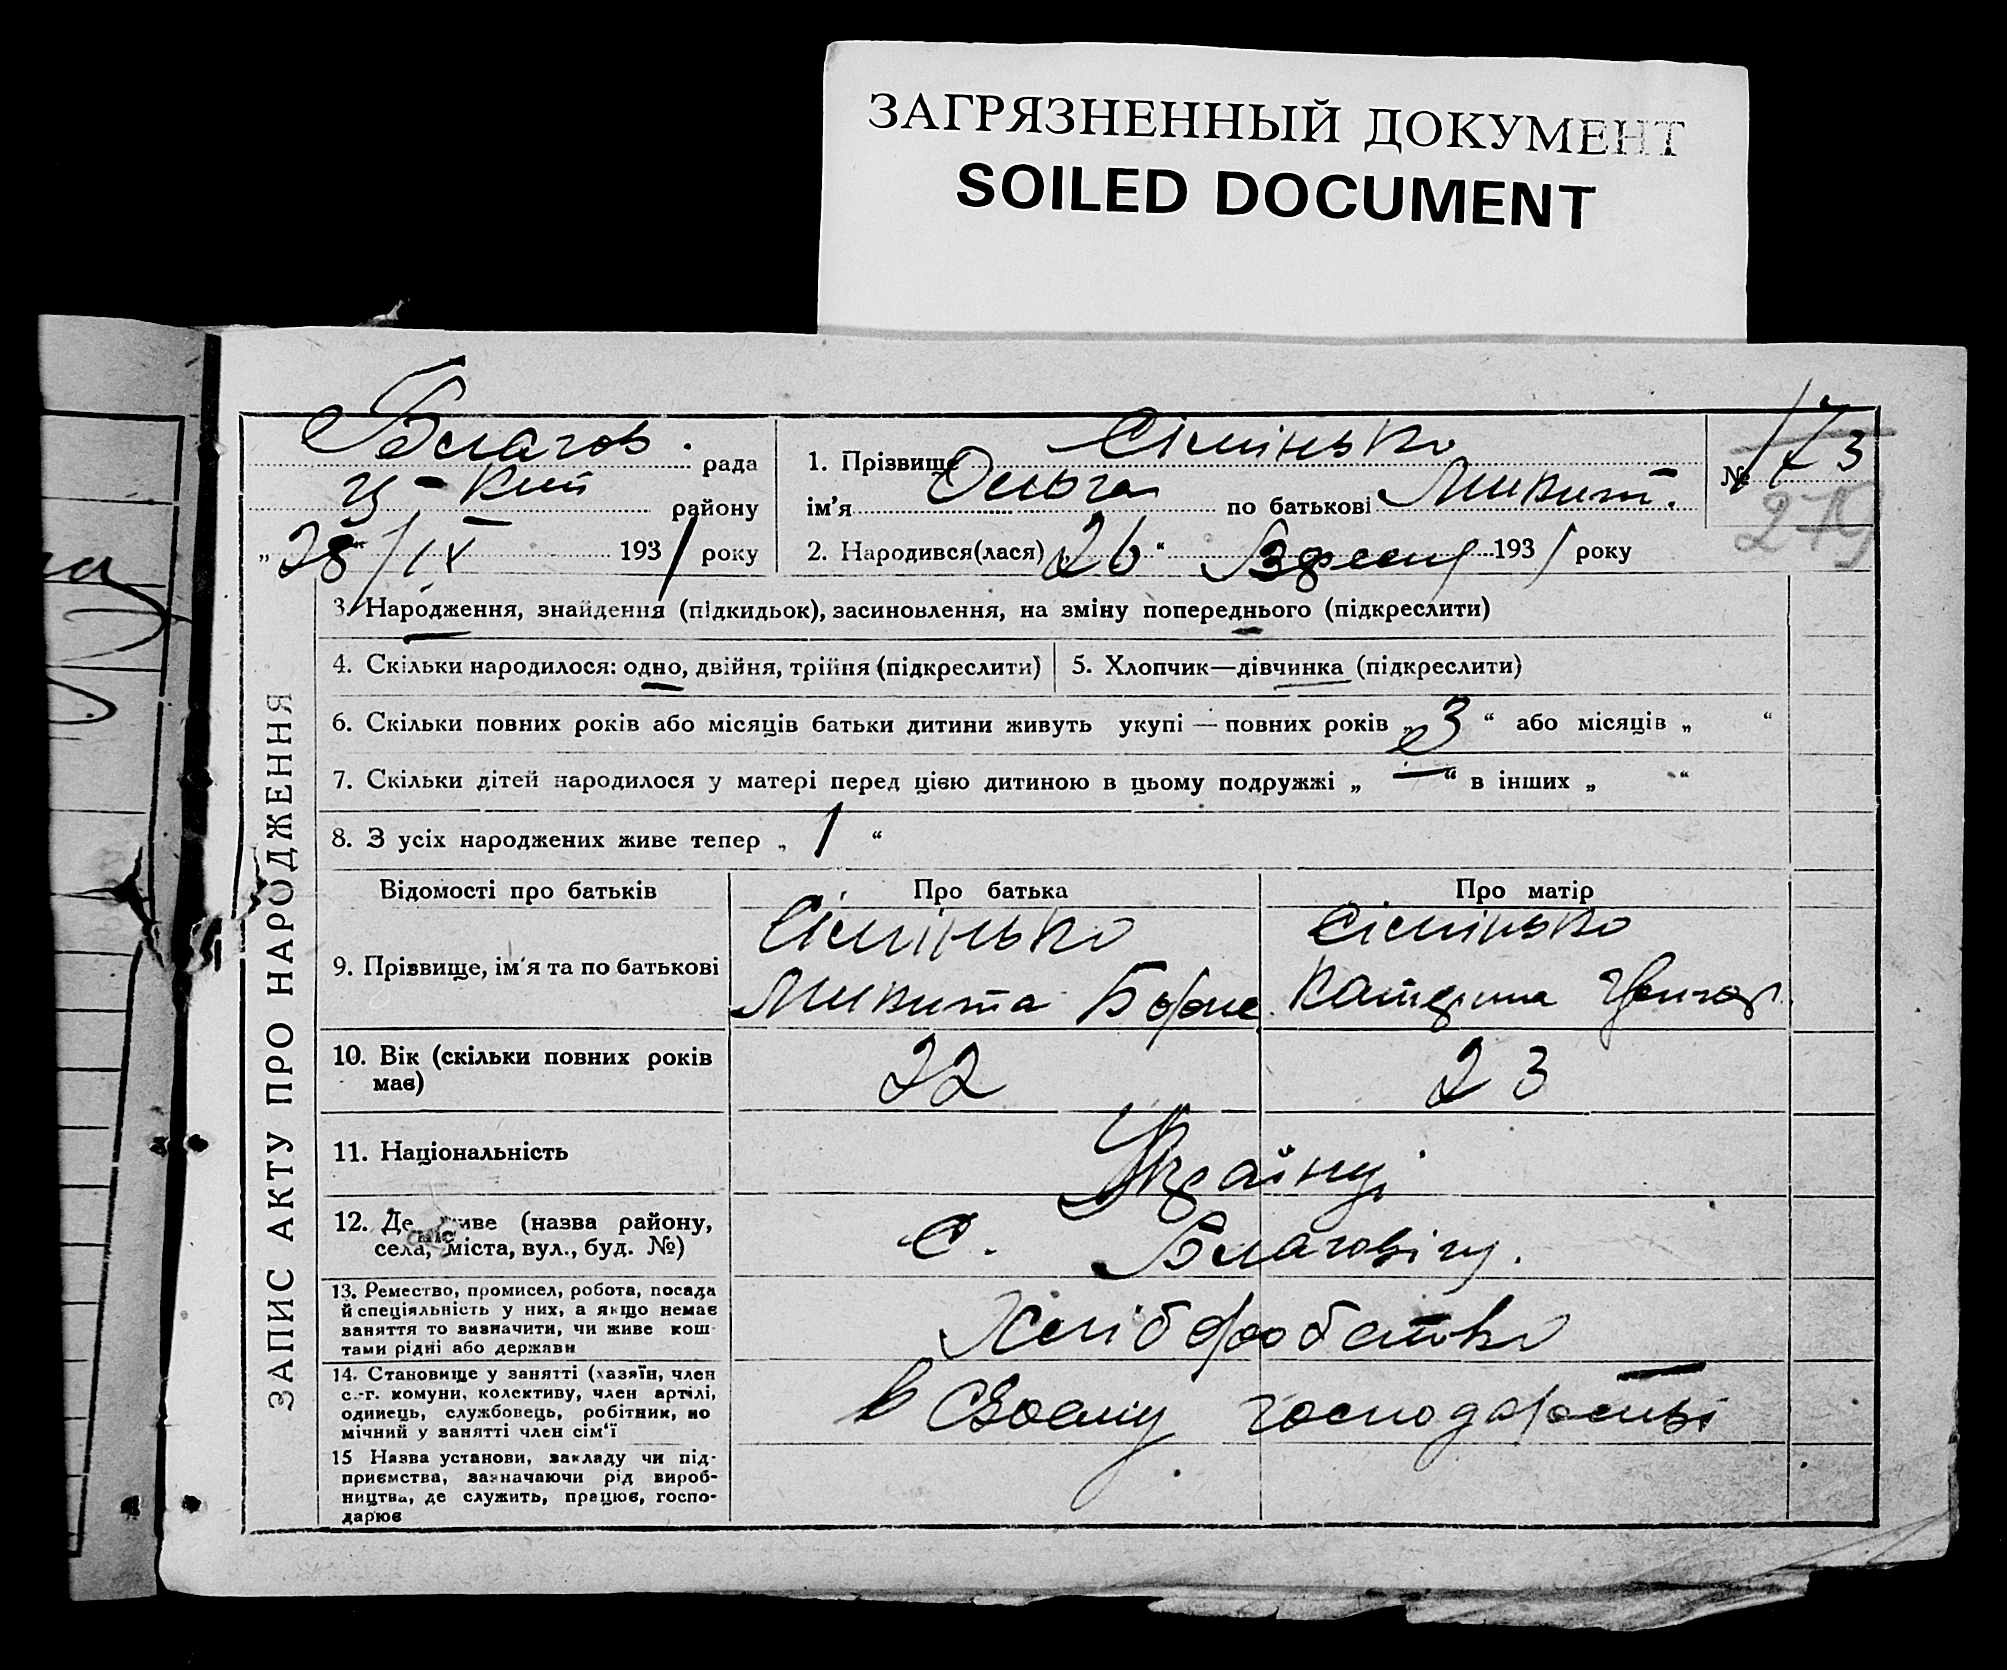 ЗАГРЯЗНЕННЫЙ ДОКУМЕНТ
SOILED DOCUMENT
Благов. рада
Ц-кий району
„28“/IX 1931 року
1. Прізвище Сімінько
ім'я Ольга по батькові Микит.
2. Народився(лася) 26 “ Вересн 1931 року
№ 173
ЗАПИС АКТУ ПРО НАРОДЖЕННЯ
3. Народження, знайдення (підкидьок), засиновлення, на зміну попереднього (підкреслити)
4. Скільки народилося: одно, двійня, трійня (підкреслити)
5. Хлопчик—дівчинка (підкреслити)
6. Скільки повних років або місяців батьки дитини живуть укупі — повних років „ 3 “ або місяців „ “
7. Скільки дітей народилося у матері перед цією дитиною в цьому подружжі „ — “ в інших „ “
8. З усіх народжених живе тепер „ 1 “
Відомості про батьків
Про батька
Про матір
9. Прізвище, ім'я та по батькові
Сімінько
Микита
Сімінько
Катерина Григор.
10. Вік (скільки повних років
має)
22
23
11. Національність
Українці
12. Де живе (назва району,
села, міста, вул., буд. №)
с. Благовіщ.
13. Ремество, промисел, робота, посада
й спеціяльність у них, а якщо немає
заняття то зазначити, чи живе кош-
тами рідні або держави
Хліборобство
14. Становище у занятті (хазяїн, член
с.-г. комуни, колективу, член артілі,
одинець, службовець, робітник, по
мічний у занятті член сім'ї
в своему господарстві
15 Назва установи, закладу чи під-
приємства, зазначаючи рід вироб-
ництва, де служить, працює, госпо-
дарює